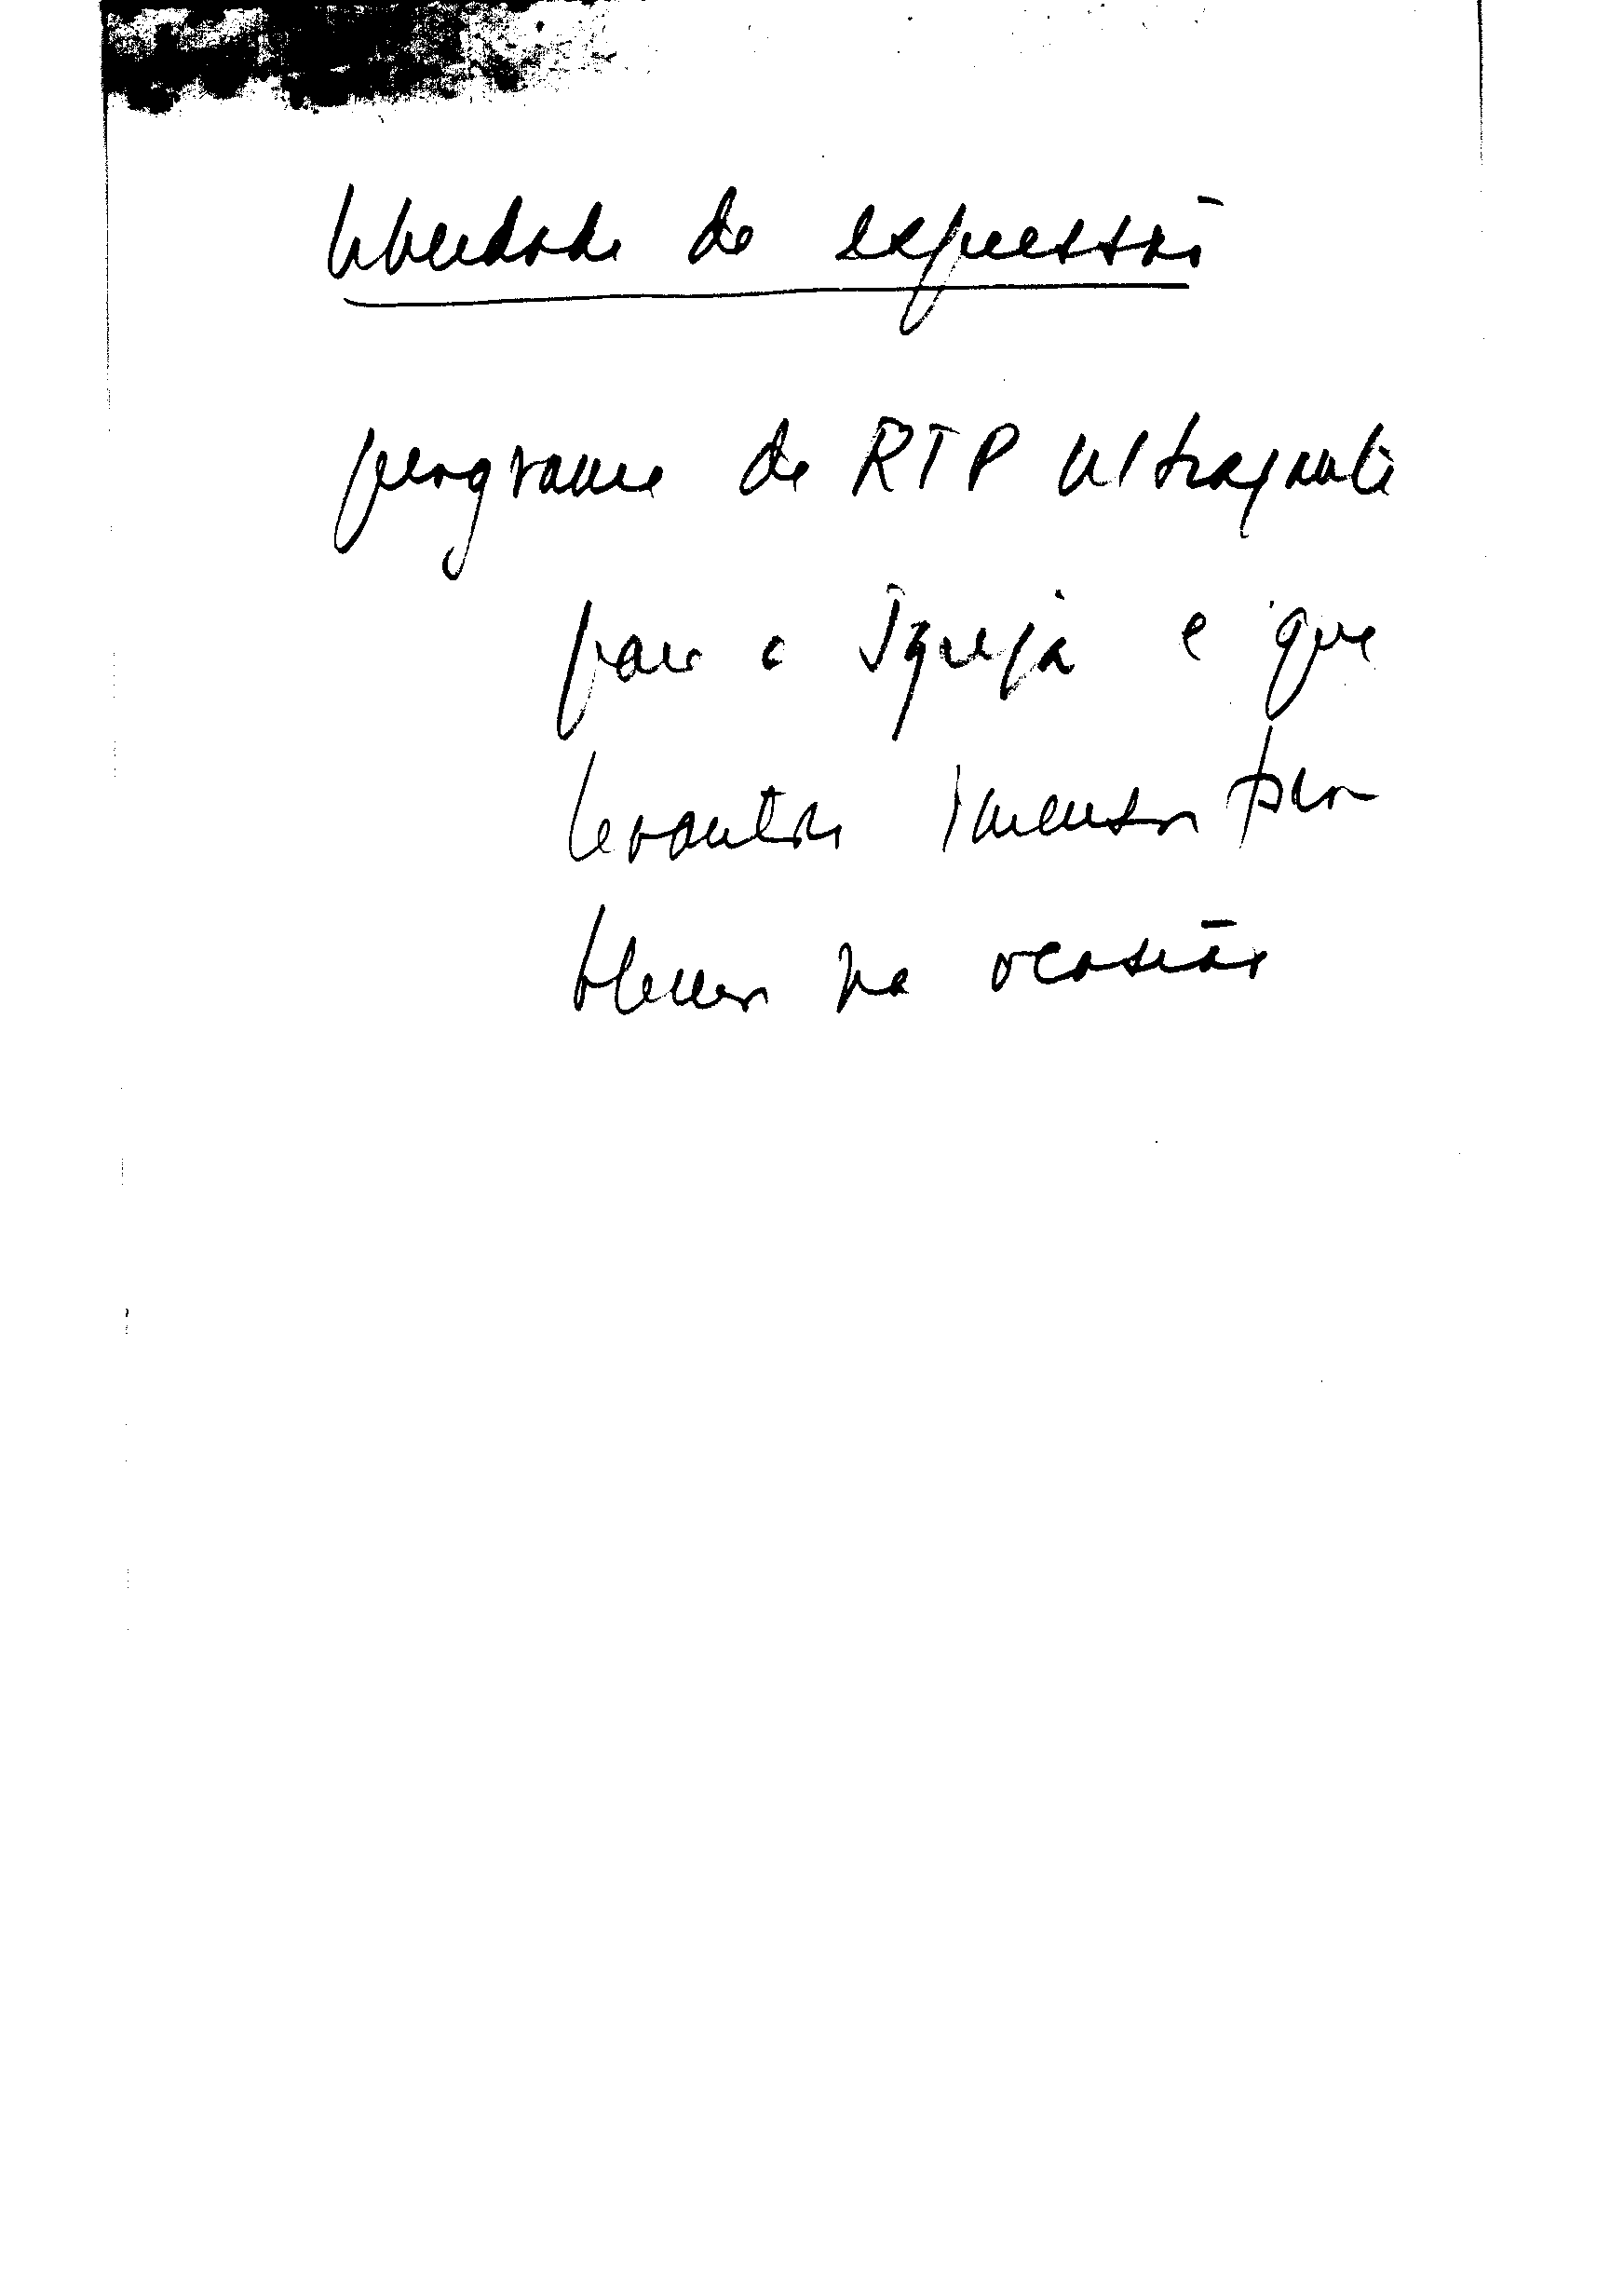 liberdade de expressão
programa da RTP ultrajante
para a Igreja e que
levantou imenso pro
blema na ocasião